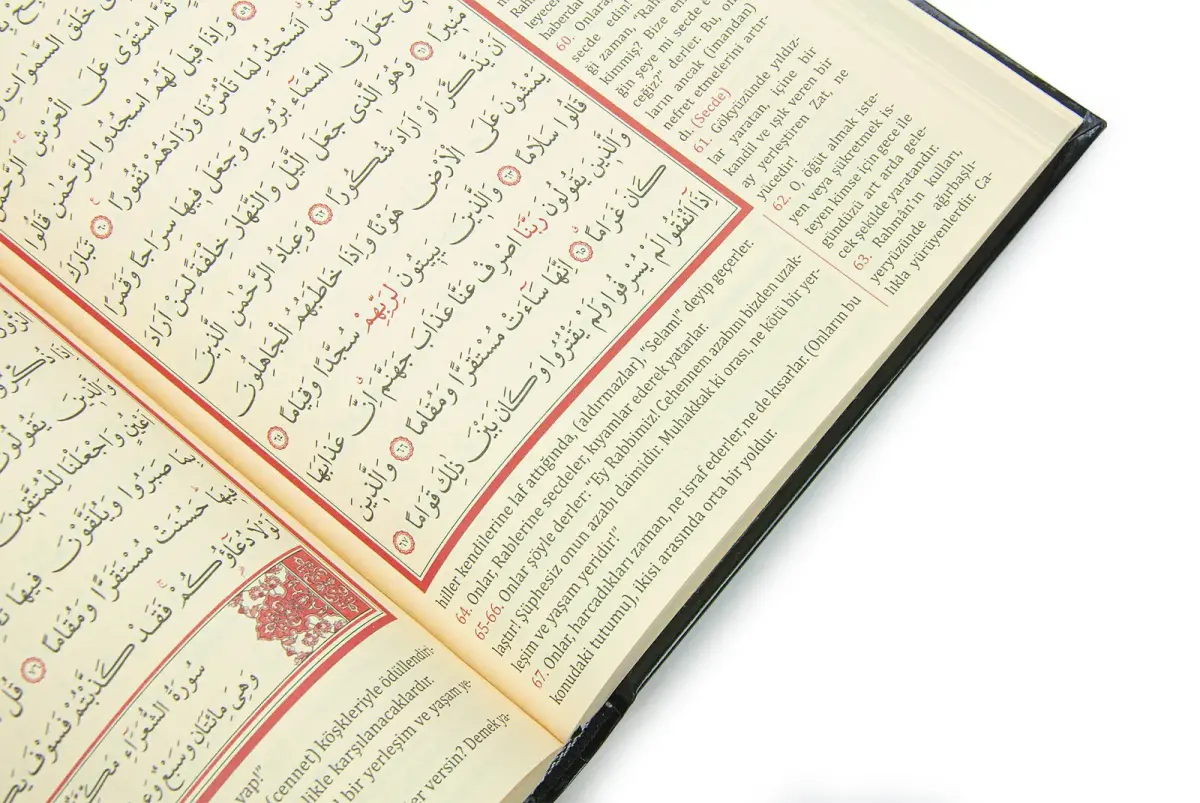 خَلَقَ السَّمٰوَاتِ
ثُمَّ اسْتَوٰى عَلَى الْعَرْشِ
٥٩ وَاِذَا قِيلَ لَهُمُ اسْجُدُوا لِلرَّحْمٰنِ قَالُوا
اَنَسْجُدُ لِمَا تَأْمُرُنَا وَزَادَهُمْ نُفُورًا ٦٠ تَبَارَكَ
جَعَلَ فِى السَّمَٓاءِ بُرُوجًا وَجَعَلَ فِيهَا سِرَاجًا وَقَمَرًا
مُنِيرًا ٦١ وَهُوَ الَّذِى جَعَلَ الَّيْلَ وَالنَّهَارَ خِلْفَةً لِمَنْ اَرَادَ
اَنْ يَذَّكَّرَ اَوْ اَرَادَ شُكُورًا ٦٢ وَعِبَادُ الرَّحْمٰنِ الَّذِينَ
يَمْشُونَ عَلَى الْاَرْضِ هَوْنًا وَاِذَا خَاطَبَهُمُ الْجَاهِلُونَ
قَالُوا سَلَامًا ٦٣ وَالَّذِينَ يَبِيتُونَ لِرَبِّهِمْ سُجَّدًا وَقِيَامًا ٦٤
وَالَّذِينَ يَقُولُونَ رَبَّنَا اصْرِفْ عَنَّا عَذَابَ جَهَنَّمَ اِنَّ عَذَابَهَا
كَانَ غَرَامًا ٦٥ اِنَّهَا سَٓاءَتْ مُسْتَقَرًّا وَمُقَامًا ٦٦ وَالَّذِينَ
اِذَٓا اَنْفَقُوا لَمْ يُسْرِفُوا وَلَمْ يَقْتُرُوا وَكَانَ بَيْنَ ذٰلِكَ قَوَامًا ٦٧
60. Onlara,
secde edin!
ği zaman, "Rah
kimmiş? Bize em
ğin şeye mi secde e
ceğiz?" derler. Bu, on
ların ancak (imandan)
nefret etmelerini artır-
dı. (Secde)
61. Gökyüzünde yıldız-
lar yaratan, içine bir
kandil ve ışık veren bir
ay yerleştiren Zat, ne
yücedir!
62. O, öğüt almak iste-
yen veya şükretmek is-
teyen kimse için gece ile
gündüzü art arda gele-
cek şekilde yaratandır.
63. Rahmân'ın kulları,
yeryüzünde ağırbaşlı-
lıkla yürüyenlerdir. Ca-
hiller kendilerine laf attığında, (aldırmazlar), "Selam!" deyip geçerler.
64. Onlar, Rablerine secdeler, kıyamlar ederek yatarlar.
65-66. Onlar şöyle derler: "Ey Rabbimiz! Cehennem azabını bizden uzak-
laştır! Şüphesiz onun azabı daimidir. Muhakkak ki orası, ne kötü bir yer-
leşim ve yaşam yeridir!"
67. Onlar, harcadıkları zaman, ne israf ederler, ne de kısarlar. (Onların bu
konudaki tutumu), ikisi arasında orta bir yoldur.
وَالَّذِينَ يَقُولُونَ
اَعْيُنٍ وَاجْعَلْنَا لِلْمُتَّقِينَ
بِمَا صَبَرُوا وَيُلَقَّوْنَ فِيهَا
فِيهَا حَسُنَتْ مُسْتَقَرًّا وَمُقَامًا ٧٦ قُلْ
لَوْلَا دُعَٓاؤُكُمْ فَقَدْ كَذَّبْتُمْ فَسَوْفَ
سُورَةُ الشُّعَرَاءِ
وَهِىَ مِائَتَانِ وَسَبْعٌ
(cennet) köşkleriyle ödüllendiri-
likle karşılanacaklardır.
l bir yerleşim ve yaşam ye-
er versin? Demek ya-